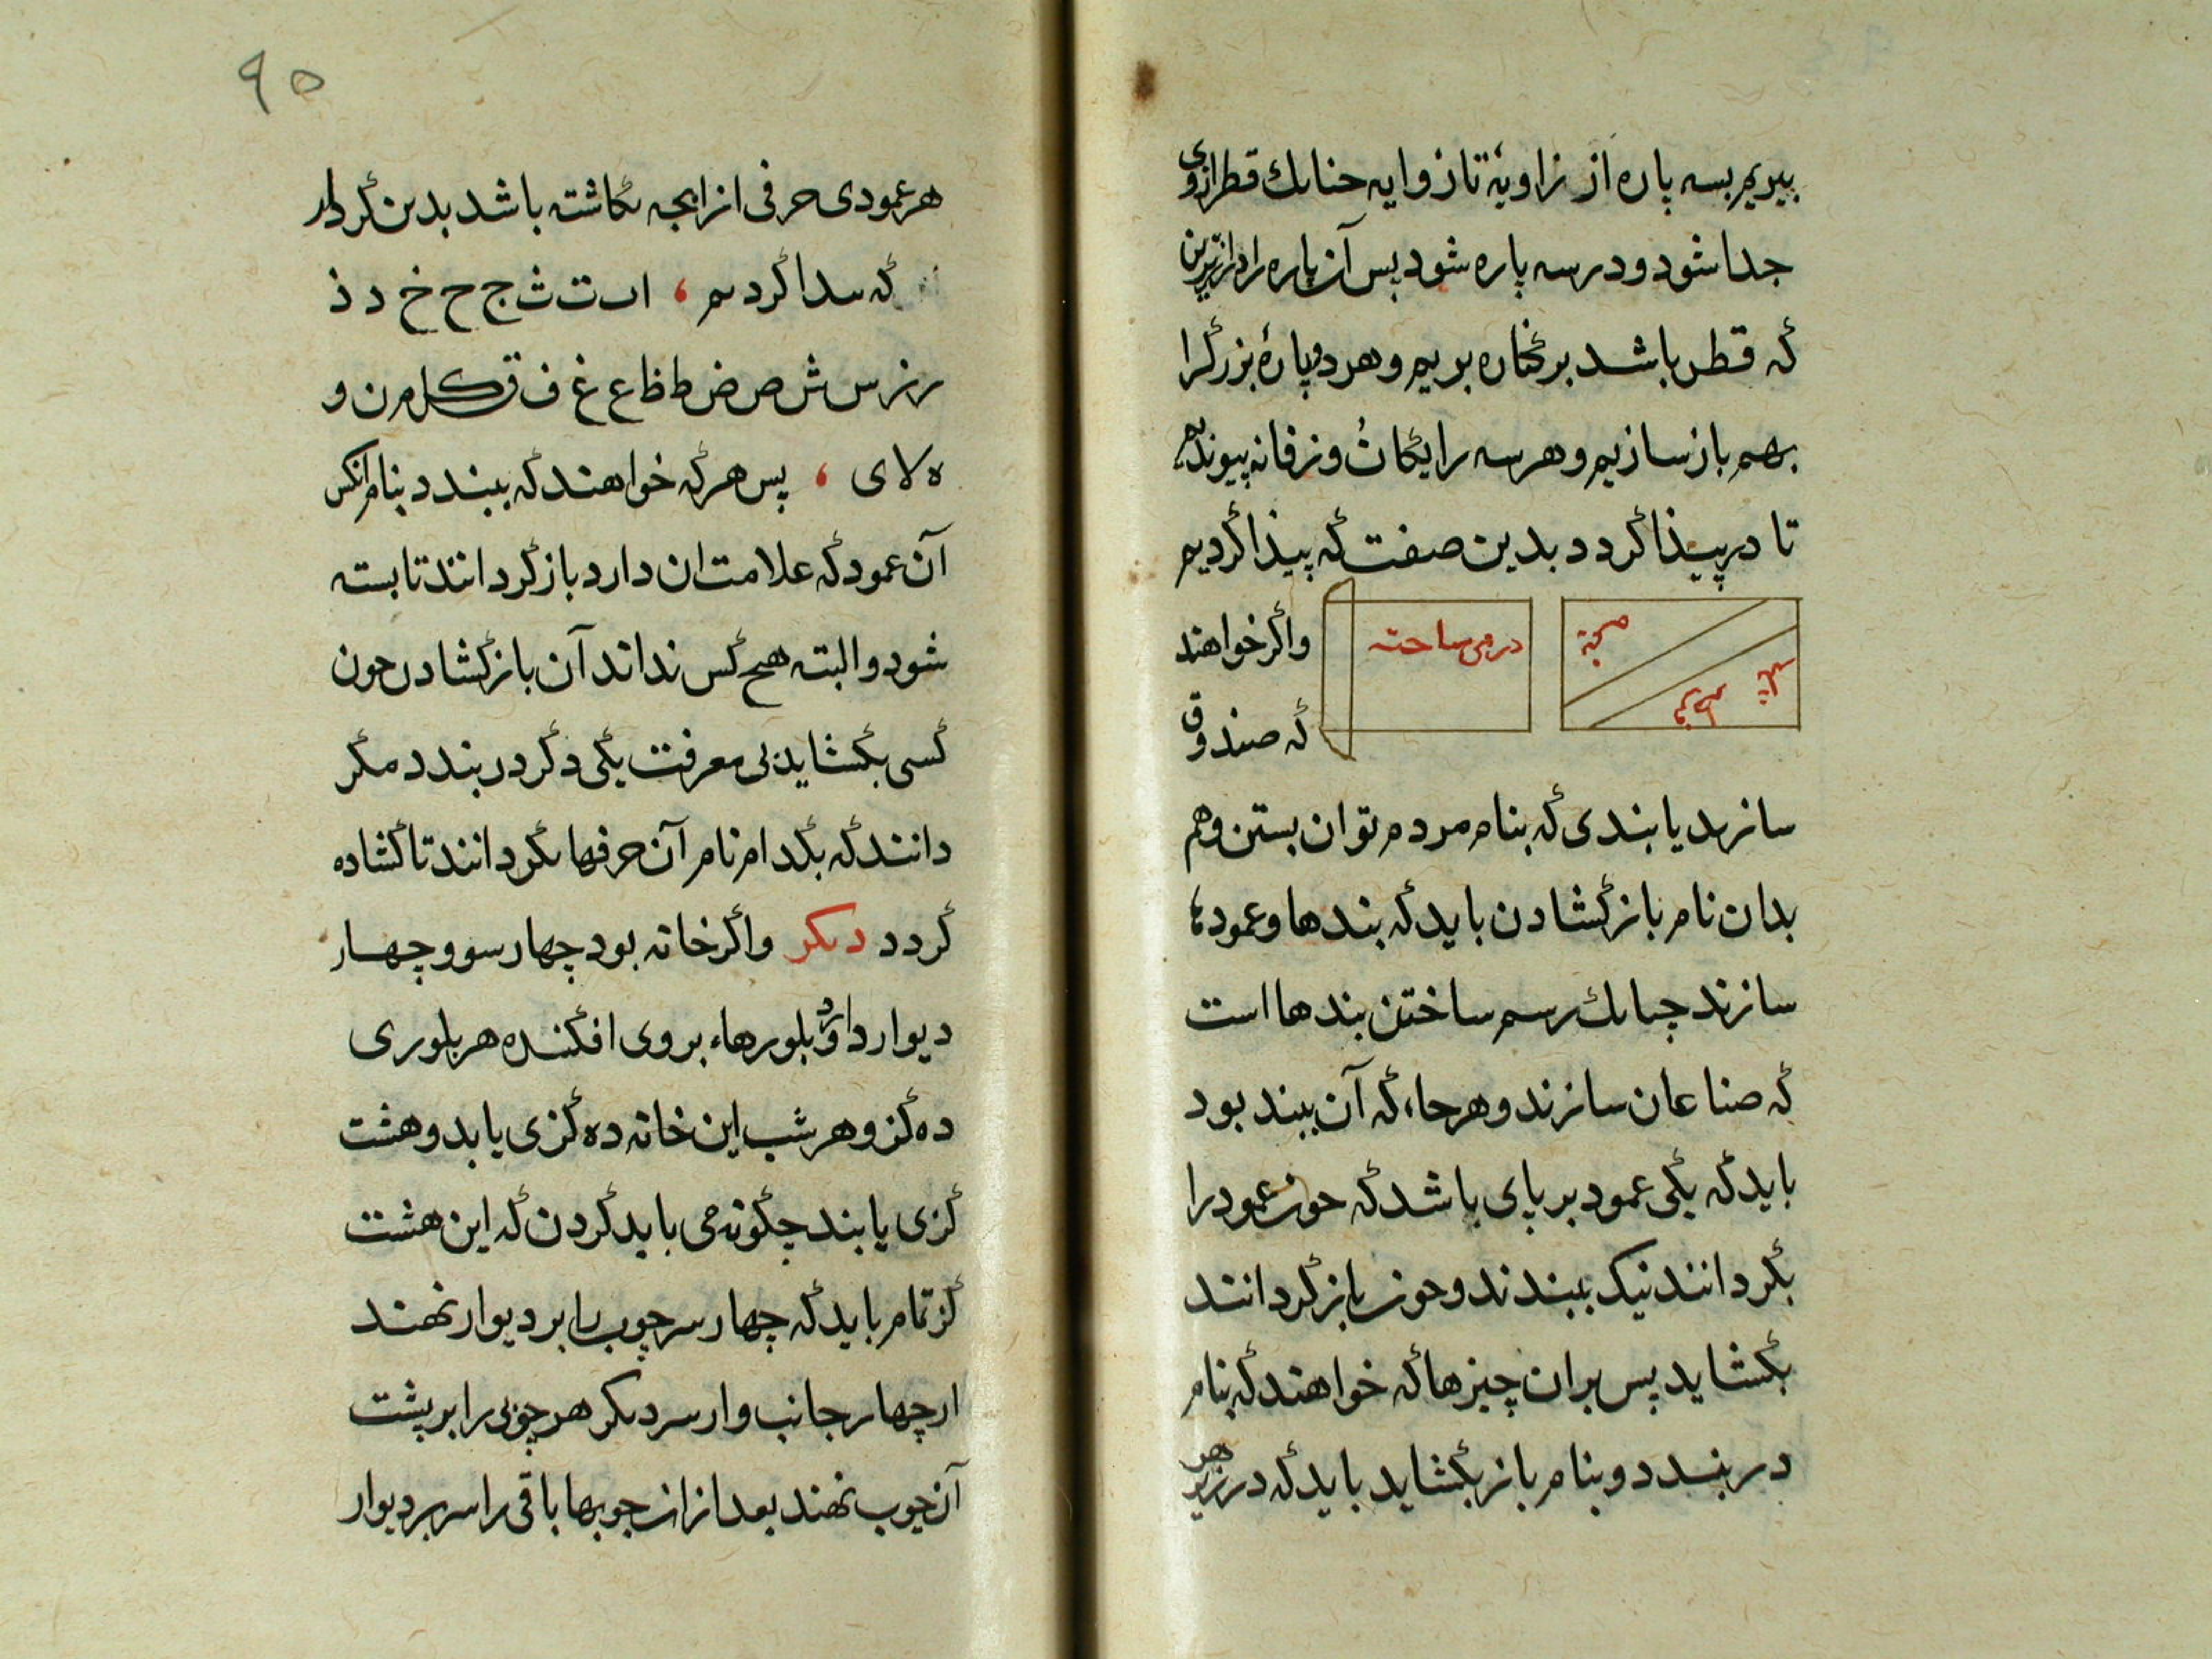 ببریم بسه پاره از زاویهٔ تا زوایه چنانك قطر ازوی
جدا شود و در سه پاره شود پس آن پاره را درازترین
که قطر باشد بر کناره بریم و هر دو پارهٔ بزرگ را
بهم باز سازیم و هر سه را یکان و زفانه پیوندیم
تا در پیذا گردد بدین صفت که پیذا کردیم
در می ساخته
پاره
واکر خواهند
که صندوق
سازند یا بندی که بنام مردم توان بستن و هم
بدان نام باز کشادن باید که بندها و عمودها
سازند چنانك رسم ساختن بندها است
که صناعان سازند و هر جاء که آن ببند بود
باید که یکی عمود بر پای باشد که چون عمود را
بگردانند نیک ببندند و چون باز گردانند
بکشاید پس بران چیزها که خواهند که بنام
در بندد و بنام باز بکشاید باید که در زیر هر
٩٥
هر عمودی حرفی از ابجد نکاشته باشد بدین کردار
که پیدا کردیم ، ا ب ت ث ج ح خ د ذ
ر ز س ش ص ض ط ظ ع غ ف ق ک ل م ن و
ه لا ی ، پس هر که خواهند که ببندد بنام انکس
آن عمود که علامت ان دارد باز گردانند تا بسته
شود و البته هیچ کس نداند آن باز کشادن چون
کسی بکشاید بی معرفت یکی دکر در بندد مکر
دانند که بکدام نام آن حرفها بکردانند تا کشاده
کردد دیکر واکر خانه بود چهار سو و چهار
دیوار دارد و بلورهاء بروی افکنده هر بلوری
ده کز و هر شب این خانه ده کزی یابد و هشت
کزی یابند چکونه می باید کردن که این هشت
کز تمام باید که چهار سر چوب را بر دیوار نهند
از چهار جانب و از سر دیکر هر چوبی را بر پشت
آن چوب نهند بعد از ان چوبها باقی را سر بر دیوار